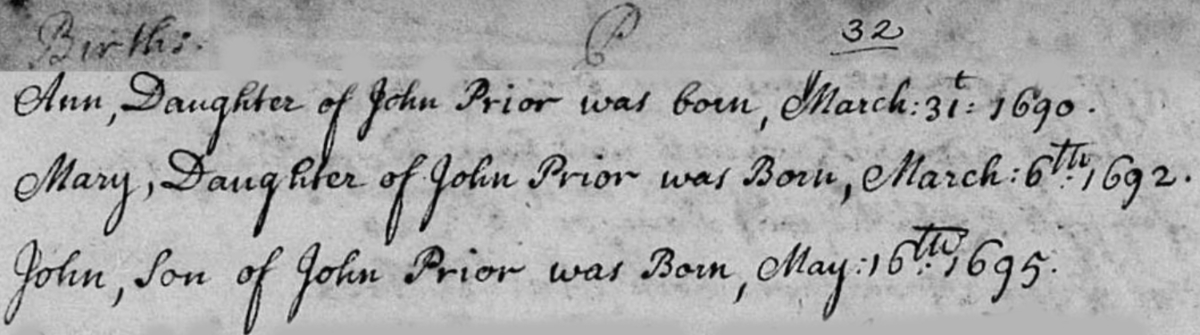 Births. P 32
Ann, Daughter of John Prior was born, March: 31t: 1690.
Mary, Daughter of John Prior was Born, March: 6th: 1692.
John, Son of John Prior was Born, May: 16th: 1695.